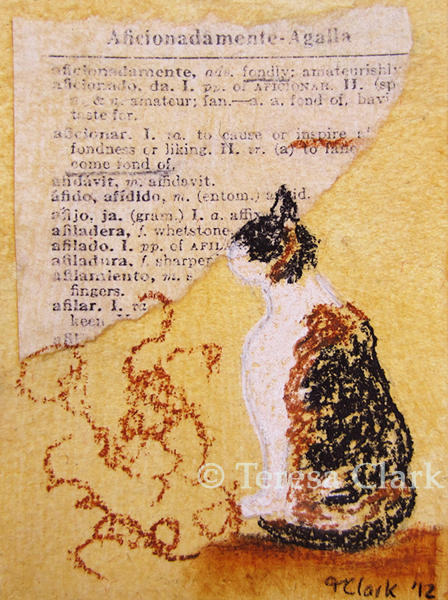 Aficionadamente-Agalla
aficionadamente, adv. fondly; amateurishly
aficionado, da. I. pp. of AFICIONAR. II. (sp
n. & n. amateur; fan.—a. a. fond of, havi
taste for.
aficionar. I. va. to cause or inspire
fondness or liking. II. vr. (a) to
come fond of.
afidávit, m. affidavit.
áfido, afídido, m. (entom.) aphid.
afijo, ja. (gram.) I. a. affix
afiladera, f. whetstone.
afilado. I. pp. of AFILA
afiladura, f. sharper
afilamiento, m. s
fingers.
afilar. I. va
keen
afil
© Teresa Clark
TClark '12